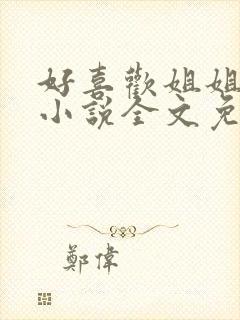 好喜歡姐姐
小說全文免
鄭偉